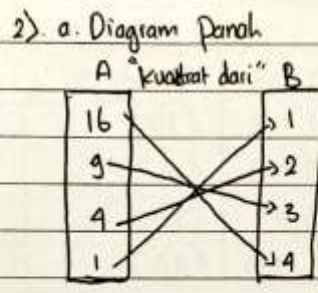 2). a. Diagram Panah
A "kuadrat dari" B
16 1
9 2
4 3
1 4